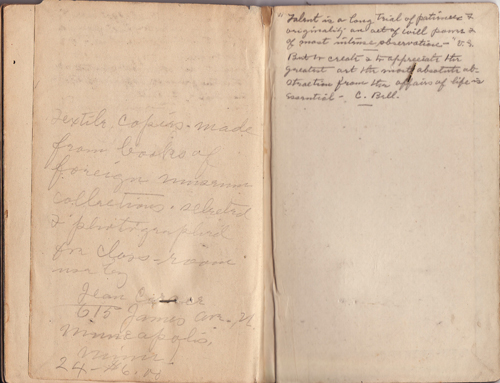 Textile copies made
from books of
foreign museum
collections. selected
& photographed
for class-room
use by
Jean
615 James Ave. N.
Minneapolis,
Minn.
"Talent is a long trial of patience &
originality an act of will power &
of most intense observation" V.G.
But to create & to appreciate the
greatest art the most absolute ab-
straction from the affairs of life is
essential - C. Bell.